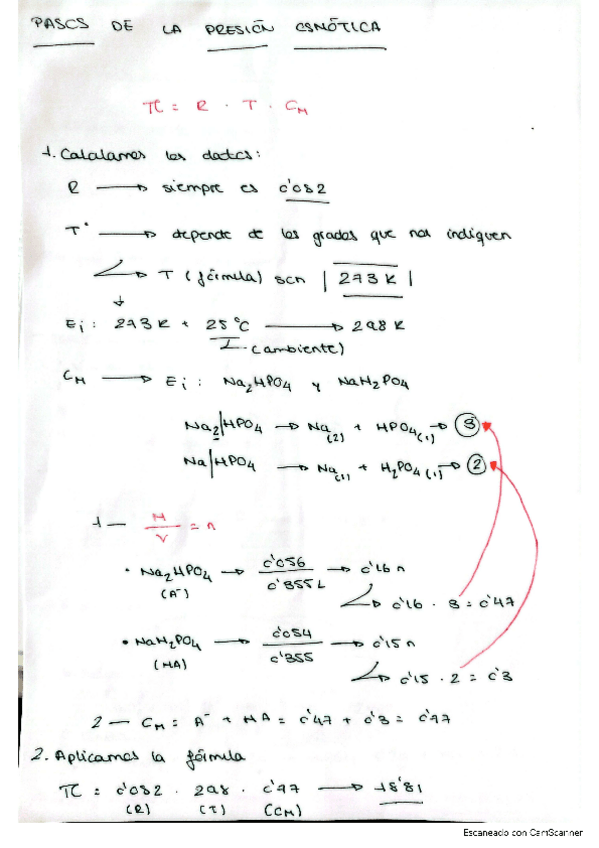 PASOS DE LA PRESIÓN OSMÓTICA
π = R · T · CM
1. Calculamos los datos:
R → siempre es 0'082
T° → depende de los grados que nos indiquen
→ T (fórmula) son | 273 K |
Ej: 273 K + 25 °C → 298 K
T. (ambiente)
CM → Ej: Na2HPO4 y NaH2PO4
Na2|HPO4 → Na(2) + HPO4(1) → 3
Na|HPO4 → Na(1) + H2PO4(1) → 2
1 — M/V = n
• Na2HPO4 → 0'056/0'355 L → 0'16 n
(A-)
→ 0'16 · 3 = 0'47
• NaH2PO4 → 0'054/0'355 → 0'15 n
(HA)
→ 0'15 · 2 = 0'3
2 — CM = A- + HA = 0'47 + 0'3 = 0'77
2. Aplicamos la fórmula
π = 0'082 · 298 · 0'77 → 18'81
(R) (T) (CM)
Escaneado con CamScanner